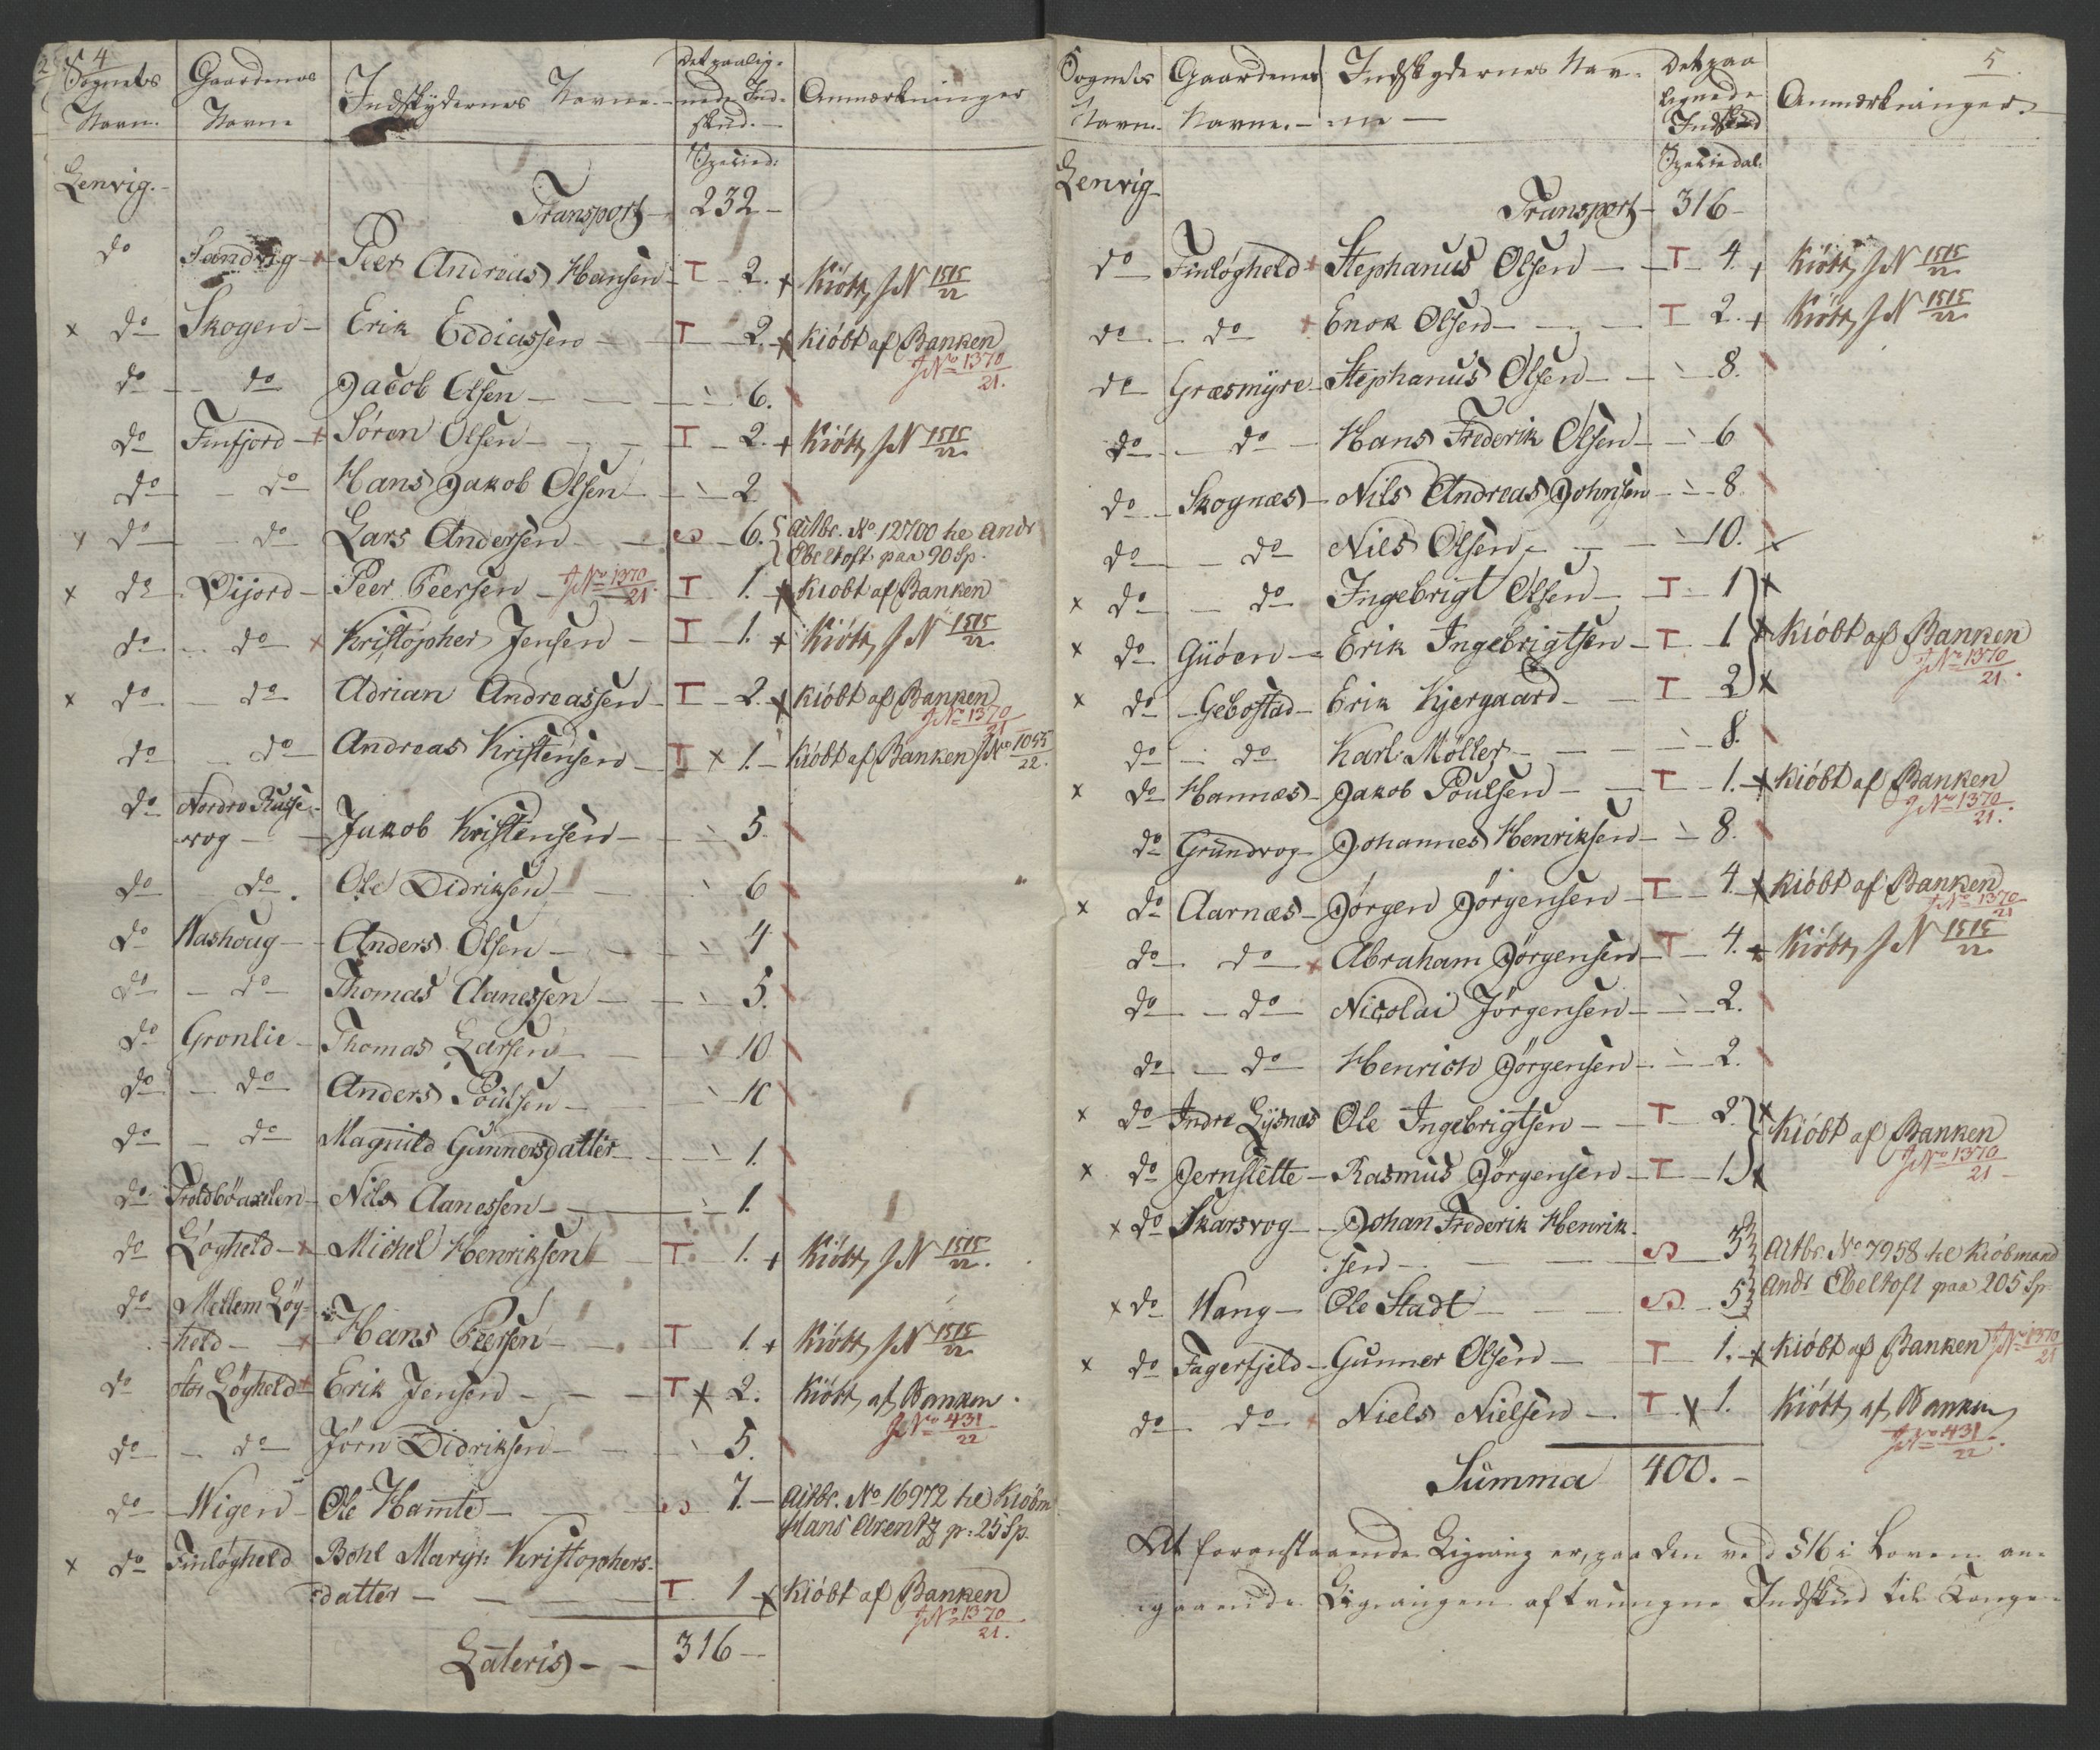 4
Sognets Navn. Gaardenes Navne Indskydernes Navne. Det paalignede Indskud. Anmærkninger
Spesied:
Lenvig.
Transport 232
do Sandvig + Peer Andreas Hansen T 2. + Kiöbt J N 1515/22
x do Skogen Erik Eddiassen T 2. + Kióbt af Banken JNo 1370/21.
do do Jacob Olsen 6.
do Finfjord + Sóren Olsen T 2. + Kiöbt J N 1515/22
do do Hans Jakob Olsen 2
x do do Lars Andersen S 6. Aitbr. No 12700 he Andr Ebeltoft paa 90 Sp.
x do Öijord Peer Peersen JNo 1370/21 T 1. x Kióbt af Banken
do do x Kristopher Jensen T 1. + Kiöbt J N 1515/22
x do do Adrian Andreassen T 2. x Kióbt af Banken JNo 1370/21
do do Andreas Kristensen T x 1. Kióbt af Banken JNo 1055/22.
do Nordre Russevog Jakob Kristensen 5.
do do Ole Didriksen 6
do Washoug Anders Olsen 4
do do Thomas Aanessen 5.
do Gronlie Thomas Larsen 10
do do Anders Poulsen 10
do do Magnild Gunnersdatter 1.
do Troldbóaxelen Nils Aanessen 1.
do Lógheld x Michel Henriksen T 1. + Kiöbt J N 1515/22.
do Mellem Lögheld x Hans Peersen T 1. + Kiöbt J N 1515/22
do Stor Lögheld x Erik Jensen T x 2. Kiöbt af Banken. JNo 431/22
do do Jórn Didriksen 5.
do Wigen Ole Hamte S 7. Aitbr. No 16972 he Kiöbm Hans Arentz p: 25 Sp.
x do Finlógheld Bohl Margr: Kristophersdatter T 1 x Kióbt af Banken JNo 1370/21.
Lateris 316
5
Sognets Navn. Gaardenes Navne. Indskydernes Navne Det paalignede Indskud Anmærkninger.
Spesiedal.
Lenvig
Transport 316
do Finlógheld x Stephanus Olsen T 4. + Kiöbt J N 1515/22
do do x Enok Olsen T 2. + Kiöbt J N 1515/22
do Græsmyre Stephanus Olsen 8.
do do Hans Frederik Olsen 6
do Skognæs Nils Andreas Johnsen 8.
do do Niels Olsen 10. x
x do do Ingebrigt Olsen T 1 x
x do Güóen Erik Ingebrigtsen T 1 x Kióbt af Banken JNo 1370/21.
x do Gebostad Erik Kjergaard T 2 x
do do Karl Möller 8.
x do Hannæs Jakob Poulsen T 1. x Kióbt af Banken JNo 1370/21.
do Grundvog Johannes Henriksen 8.
x do Aarnæs Jörgen Jörgensen T 4. x Kióbt af Banken JNo 1370/21
do do x Abraham Jörgensen T 4. + Kiöbt J N 1515/22
do do Nicolai Jörgensen 2.
do do Henrich Jörgensen 2.
x do Indre Lysnæs Ole Ingebrigtsen T 2. x Kióbt af Banken JNo 1370/21
x do Jernslette Rasmus Jörgensen T 1 x
x do Skarsvog Johan Frederik Henriksen S 5 Aitbr. No 7958 he Kióbmand
x do Wang Ole Stadt S 5 Andr Ebeltoft paa 205 Sp
x do Fagerfjeld Gunner Olsen T 1. x Kióbt af Banken JNo 1370/21
do do x Niels Nielsen T x 1. Kiöbt af Banken JNo 431/22.
Summa 400.
At foranstaaende Ligning er, paa den ved § 16 i Loven an-
gaaende Ligningen af tvungne Indskud til Konge-